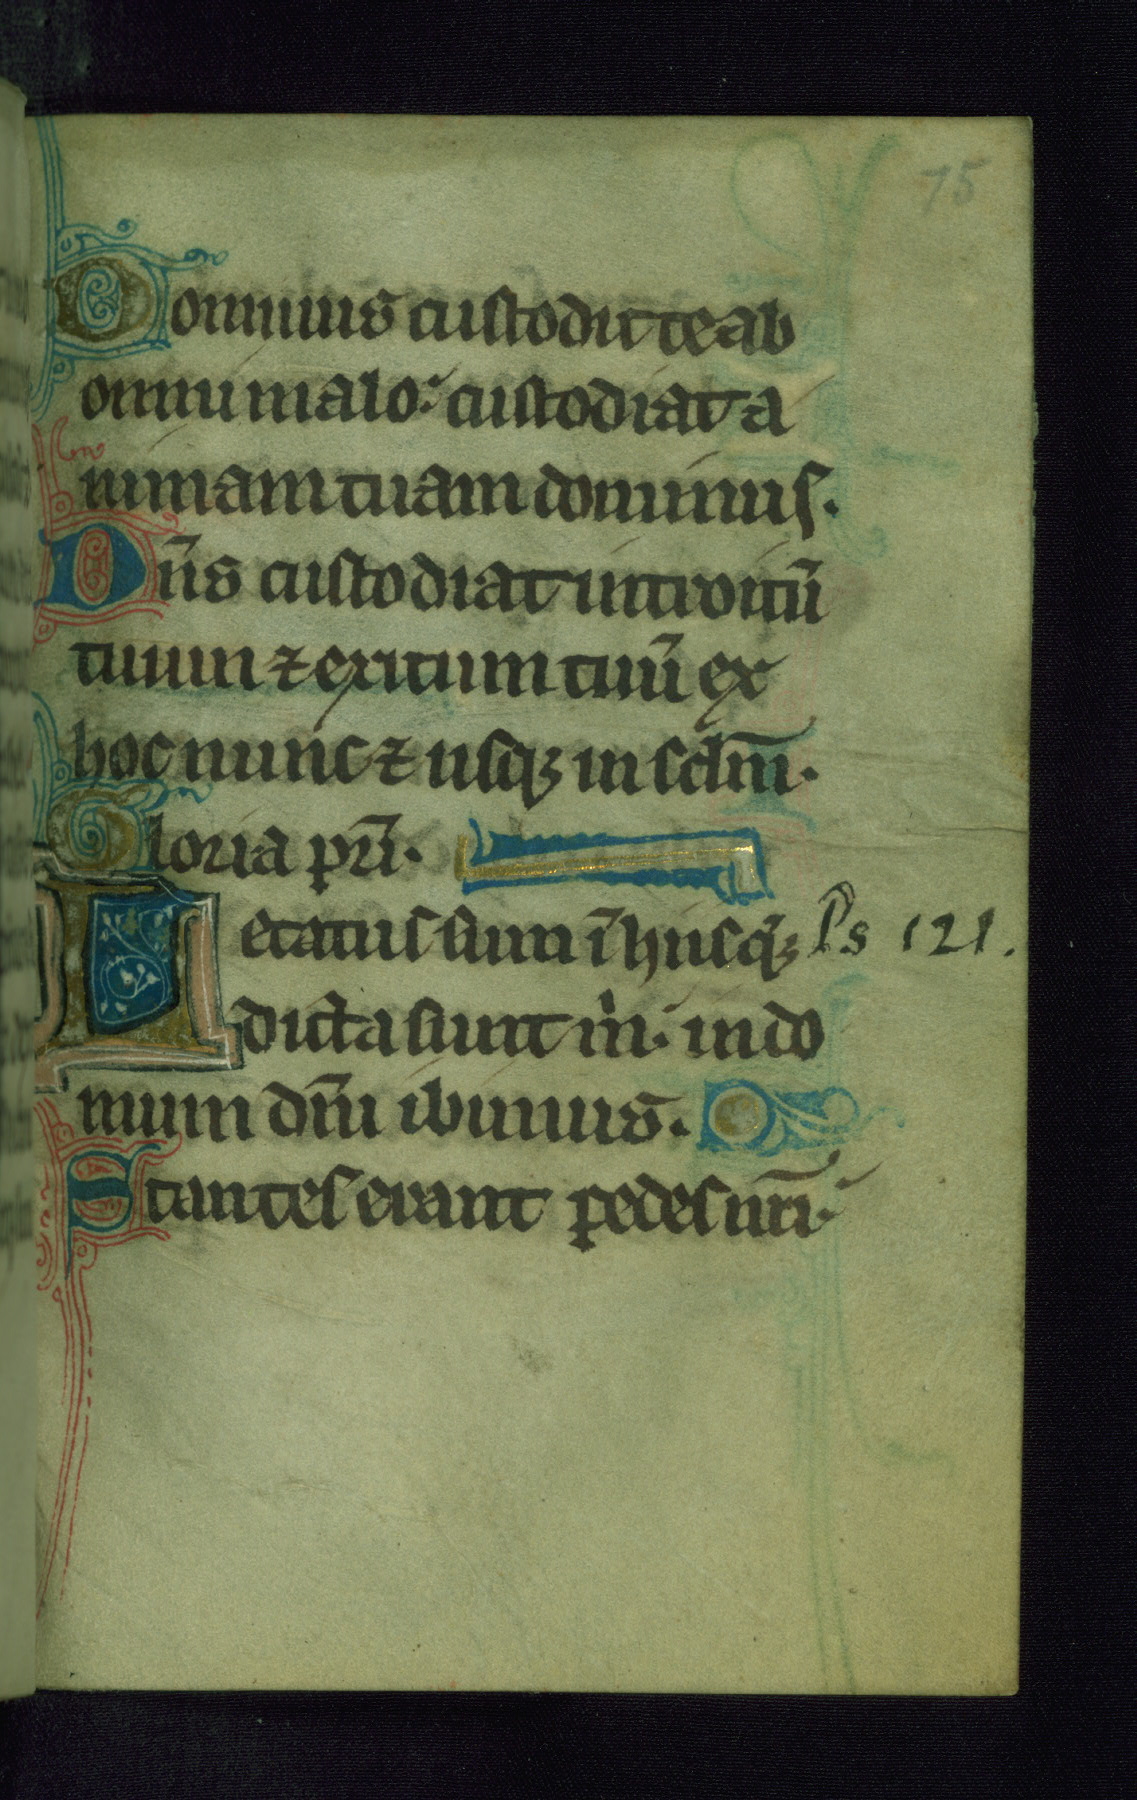 75
Dominus custodit te ab
omni malo: custodiat a
nimam tuam dominus.
Dñs custodiat introitũ
tuum ⁊ exitum tuũ ex
hoc nunc ⁊ usqꝫ in sclm̄.
Gloria pr̃i.
Letatus sum ĩ hiis q̃ꝫ Ps 121.
dicta sunt m̃. in do
mum dñi ibimus.
Stantes erant pedes nr̃i.